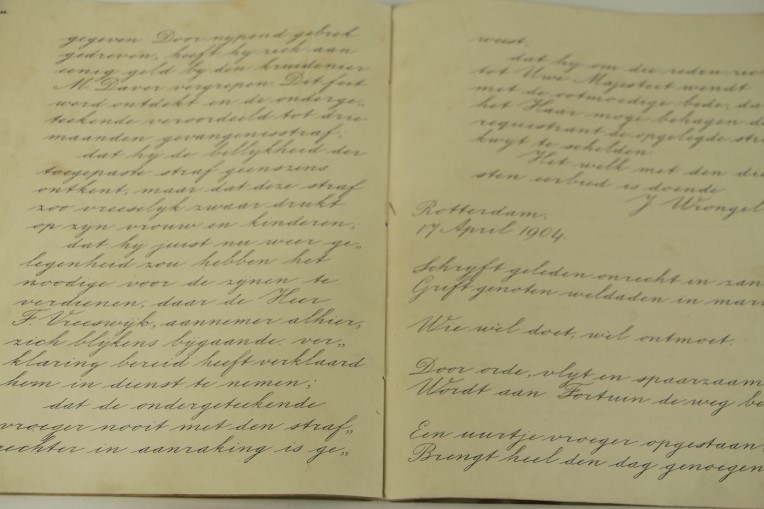 gegeven. Door nypend gebrek
gedreven, heeft hy zich aan
eenig geld by den kruidenier
M. Daver vergrepen. Dit feit
werd ontdekt en de onderge„
teekende veroordeeld tot drie
maanden gevangenisstraf.
dat hy de billykheid der
toegepaste straf geenszins
ontkent, maar dat deze straf
zoo vreeselyk zwaar drukt
op zyn vrouw en kinderen;
dat hy juist nu weer ge„
legenheid zou hebben het
noodige voor de zynen te
verdienen, daar de Heer
F. Vreeswyk, aannemer alhier,
zich blykens bygaande ver„
klaring bereid heeft verklaard
hem in dienst te nemen;
dat de ondergeteekende
vroeger nooit met den straf„
rechter in aanraking is ge„
weest.
dat hy om die reden zich
tot Uwe Majesteit wendt
met de ootmoedige bede, da
het Haar moge behagen de
requestrant de opgelegde stra
kwyt te schelden.
't Welk met den die
sten eerbied is doende
J Wrongel
Rotterdam,
17 April 1904.
Schryft geleden onrecht in zan
Grift genoten weldaden in mar
Wie wel doet, wel ontmoet.
Door orde, vlyt en spaarzaam
Wordt aan Fortuin de weg be
Een uurtje vroeger opgestaan
Brengt heel den dag genoegen